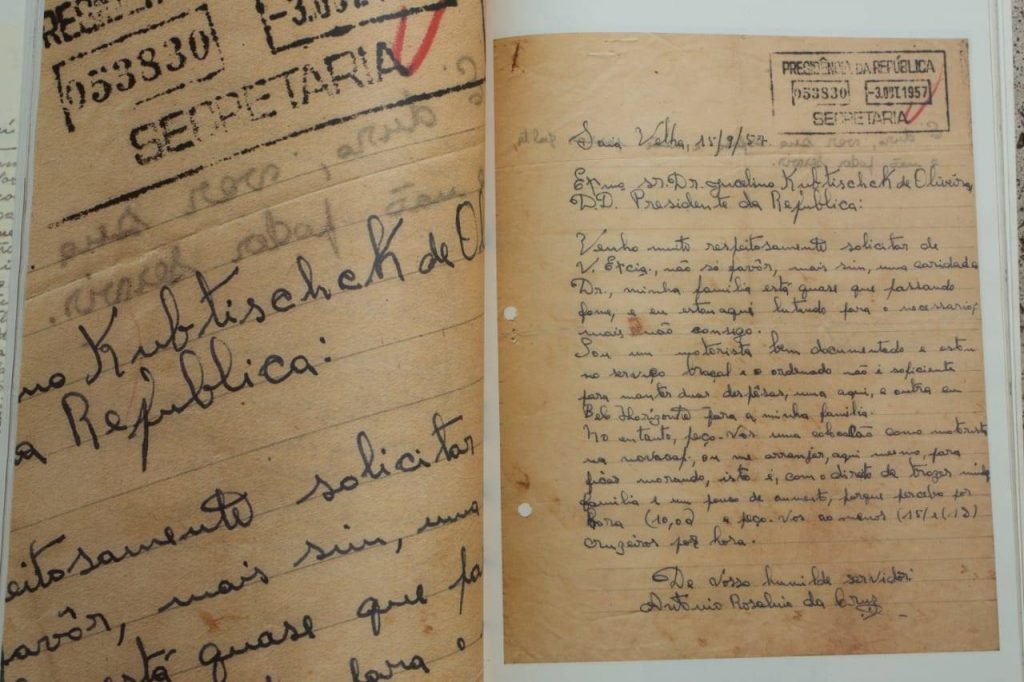 PRESIDÊNCIA
053830
-3.OUT.1957
SECRETARIA
Kubtischck de Ol
Republica:
eitosamente solicitar
favôr, mais sim, uma
está quase que pa
para o
PRESIDÊNCIA DA REPÚBLICA
053830 -3.OUT.1957
SECRETARIA
Velha, 15/9/57
Exmo sr. Dr. Jucelino Kubtischck de Oliveira
D.D. Presidente da Republica:
Venho muito respeitosamente solicitar de
V. Excia., não só favôr, mais sim, uma caridade
Dr., minha familia está quase que passando
fome, e eu estou aqui lutando para o necessario,
mais não consigo.
Sou um motorista bem documentado e estou
no serviço braçal e o ordenado não é soficiente
para manter duas despêsas, uma aqui, e outra em
Belo Horizonte para a minha familia.
No entanto, peço-Vos uma colocação como motorista
na novacap, ou me arranjar, aqui mesmo, para
ficar morando, isto é, com o direito de trazer minha
familia e um pouco de aumento, porque percebo por
hora (10,00) e peço-Vos ao menos (15/ (13)
cruzeiros por hora.
De Vosso humilde servidôr:
Antônio Rosalino da Cruz